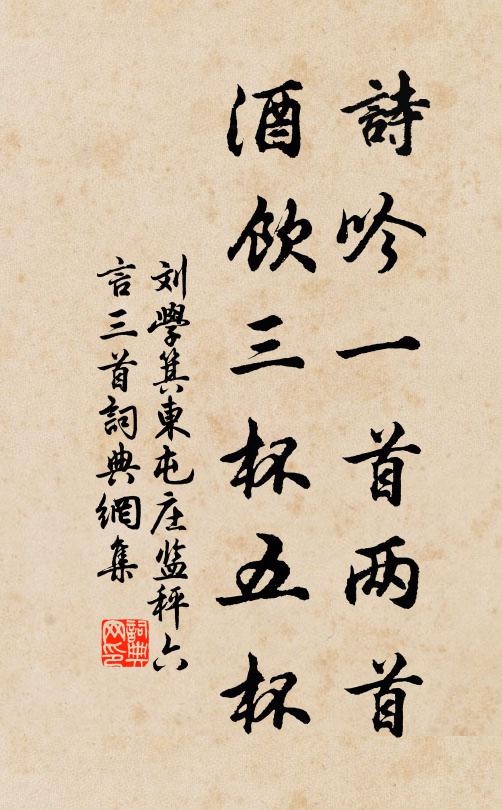 詩吟一首两首
酒飲三杯五杯
刘學箕東屯庄监秤六
言三首詞典網集
詞典网印